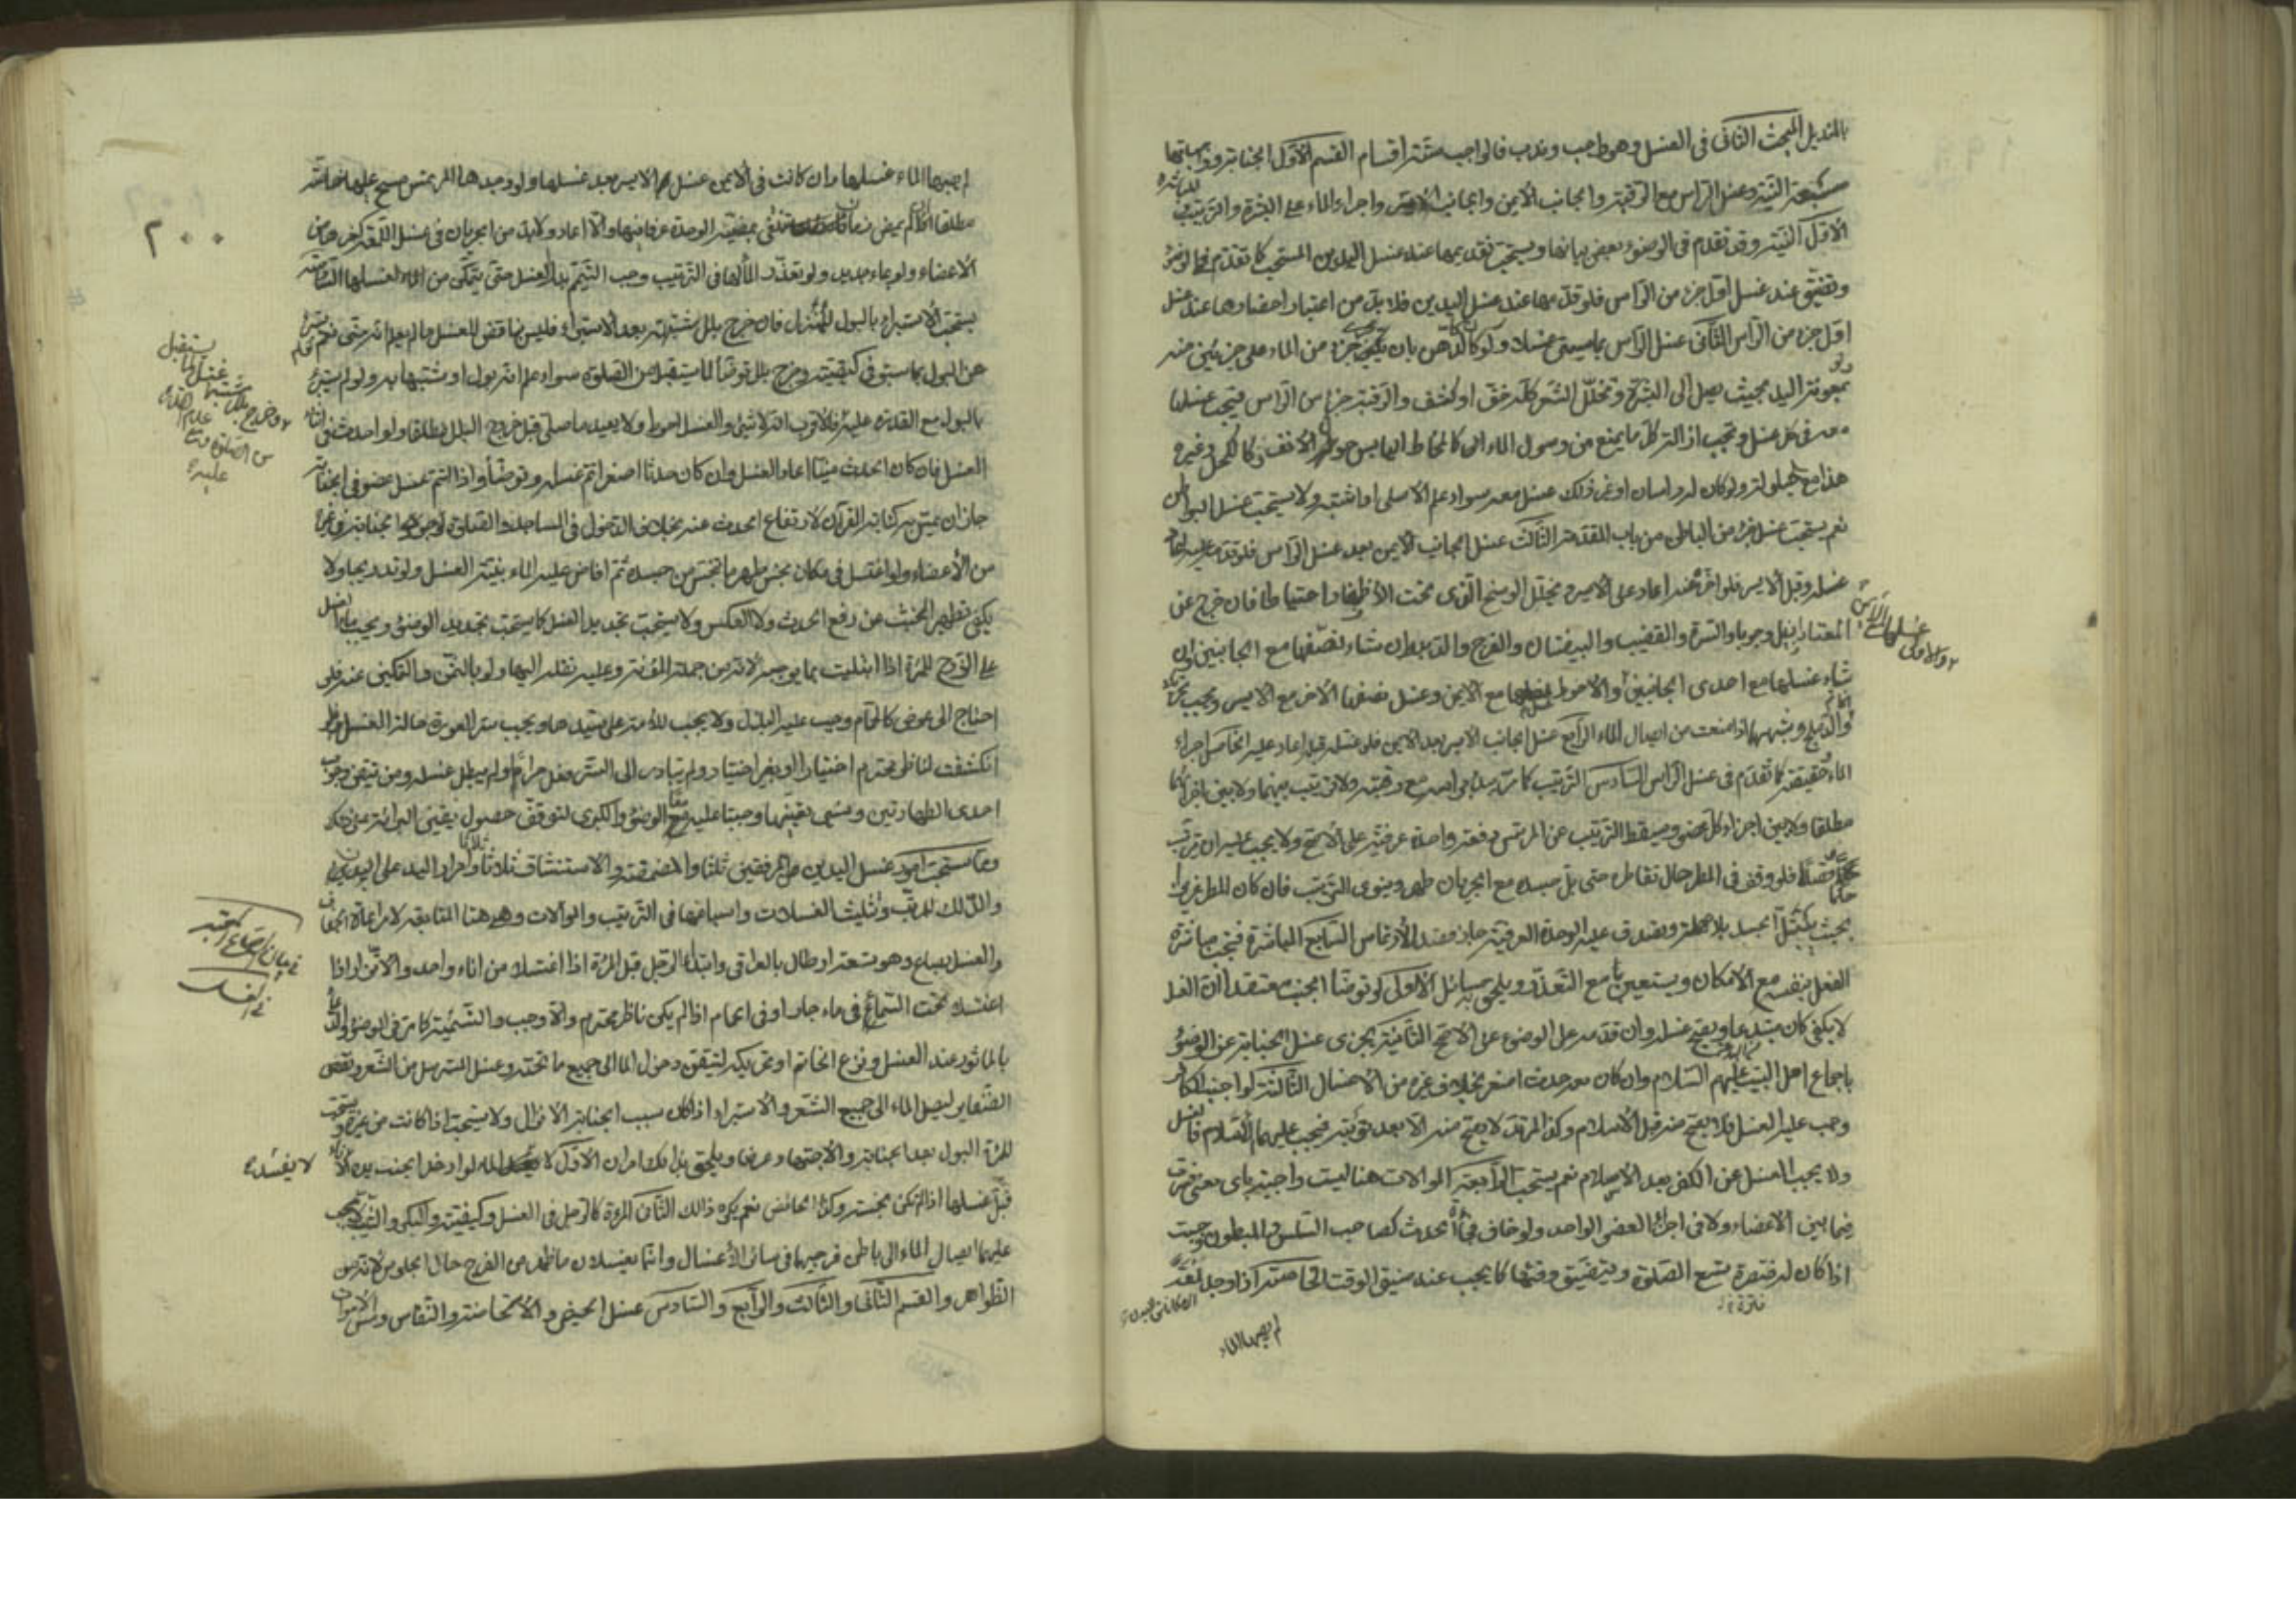 بالمنديل المبحث الثانى فى الغسل وهو واجب وندب فالواجب ستة اقسام القسم الأول الجنابة وواجباتها
سبعة النية وغسل الراس مع الرقبة والجانب الايمن والجانب الايسر واجراء الماء على البشرة والترتيب
المباشرة
الاول النية وقد تقدم فى الوضوء بعض بيانها ويستحب تقديمها عند غسل اليدين المستحب كما تقدم فى الوضوء
وتضيق عند غسل اول جزء من الراس فلو قدمها عند غسل اليدين فلا بد من اعتبار احضارها عند غسل
اول جزء من الراس الثانى غسل الراس بما يسمى غسلا ولو كالدهن بان يجرى جزء من الماء على جزئين منه
ولو
بمعونة اليد بحيث يصل الى البشرة وتخلل الشعر كله خف او كثف والرقبة جزء من الراس فيجب غسلها
معه فى كل غسل ويجب ازالة كل ما يمنع من وصول الماء الى كالمخاط اليابس حول الانف وكالكحل وغيره
هذا مع ولو كان له راسان او غير ذلك غسل معه سواء علم الاصلى او اشتبه ولا يستحب غسل البواطن
نعم يستحب غسل جزء من الباطن من باب المقدمة الثالث غسل الجانب الايمن بعد غسل الراس فلو قدمه عليه اعاد
غسله وقبل الايسر فلو اخره عنه اعاد على الايسر ويخلل الوسخ الذى تحت الأظفار احتياطا فان خرج عن
المعتاد ازيل وجوبا والسرة والقضيب والبيضتان والفرج والدبر ان شاء نصفها مع الجانبين وان
والاولى غسلها
شاء غسلها مع احدى الجانبين والاحوط غسلها مع الايمن وغسل نصفها الاخر مع الايسر ويجب تحريك
الخاتم
والدملج وشبههما اذا منعت من ايصال الماء الرابع غسل الجانب الايسر بعد الايمن فلو غسله قبله اعاد عليه الخامس اجراء
الماء حقيقة كما تقدم فى غسل الراس السادس الترتيب كما مر ببدأ براسه مع رقبته ولا ترتيب بينهما ولا بين اجزائهما
مطلقا ولا بين اجزاء كل عضو ويسقط الترتيب عن المرتمس دفعة واحدة عرفية على الاصح ولا يجب عليه ان يرتب
حكما
فلو وقف فى المطر حال تقاطره حتى بل جسده مع الجريان طهر وينوى الترتيب فان كان المطر غزيرا
بحيث يبتل الجسد بلا مهلة ويصدق عليه الوحدة العرفية جاز قصد الارتماس السابع المباشرة فيجب مباشرة
الفعل بنفسه مع الامكان ويستعين مع التعذر ويلحق به مسائل الاولى لو توضأ الجنب معتقدا ان الغسل
لا يكفى كان مبتدعا وبصح غسله وان قدمه على الوضوء على الاصح الثانية يجزى غسل الجنابة عن الوضوء
باجماع اهل البيت عليهم السلام وان كان معه حدث اصغر بخلاف غيره من الاغسال الثالثة لو اجنب الكافر
وجب عليه الغسل فلا يصح منه قبل الاسلام وكذا المرتد لا يصح منه الا بعد توبته فيجب عليهما الاسلام فالغسل
ولا يجب الغسل عن الكفر بعد الاسلام نعم يستحب الرابعة الموالات هنا ليست واجبة باى معنى فسرت
فيما بين الاعضاء ولا فى اجزاء العضو الواحد ولو خاف فجأة الحدث كصاحب السلس والمبطون وجبت
اذا كان له فترة تسع الصلوة ويتضيق وقتها كما يجب عند ضيق الوقت الخامسة اذا وجد لمعة
لم يصبها الماء
لم يصبها الماء غسلها وان كانت فى الايمن غسل الايسر بعد غسلها ولو وجدها المرتمس مسح عليها خاصة
٢٠٠
مطلقا ما لم يمض زمان تنتفى بمضيه الوحدة عرفا فيهما والا اعاد ولا بد من الجريان فى غسل اللمعة كغيرها من
الاعضاء ولو بماء جديد ولو تعذر الماء لها فى الترتيب وجب التيمم بدل الغسل حتى يتمكن من الماء لغسلها السادسة
يستحب الاستبراء بالبول للمنزل فان خرج بلل مشتبه بعد الاستبراء فليس ناقض للغسل ما لم يعلم انه منى نعم
عن البول بما سبق فى كيفيته وخرج بلل توضأ لما يستقبل من الصلوة سواء علم انه بول او مشتبها به ولو لم يستبرئ
وخرج بلل مشتبه غسل لما يستقبل من الصلوة
بالبول مع القدرة عليه فالاقرب انه لا شئ والغسل احوط ولا يعيد ما صلى قبل خروج البلل مطلقا ولو احدث فى اثناء
الغسل فان كان الحدث منيا اعاد الغسل وان كان حدثا اصغر اتم غسله وتوضأ واذا اتم غسل عضو فى الجنابة
جاز ان يمس به كتابة القرآن لارتفاع الحدث عنه بخلاف الدخول فى المساجد والصلوة لوجود الجنابة فى غيره
من الأعضاء ولو اغتسل فى مكان نجس طهر ما نجس من جسده ثم افاض عليه الماء بنية الغسل ولو تدريجا ولا
يكفى تطهير الخبث عن رفع الحدث ولا العكس ولا يستحب تجديد الغسل كما يستحب تجديد الوضوء ويجب ماء الغسل
على الزوج للمرة اذا ابتليت بما يوجبه لانه من جملة المؤنة وعليه نقله اليها ولو بالثمن والتمكين عنه فلو
احتاج الى عوض كالحمام وجب عليه البذل ولا يجب للأمة على سيدها ويجب ستر العورة حالة الغسل فلو
انكشفت لناظر محترم اختيارا او بغير اختيار ولم يبادر الى الستر فعل حراما ولم يبطل غسله ومن تيقن وجوب
احدى الطهارتين ونسى تعيينها وجبتا عليه معا الوضوء والكبرى لتوقف حصول يقين البرائة على ذلك
وما يستحب امور غسل اليدين من المرفقين ثلثا والمضمضة والاستنشاق ثلاثا ثلاثا وامرار اليد على البدن
والدلك للمرتب وتثليث الغسلات واسباغها فى الترتيب والموالات وهى هنا المتابعة لا مراعاة الجفاف
والغسل بصاع وهو تسعة ارطال بالعراقى وابتداء الرجل قبل المرأة اذا اغتسلا من اناء واحد والاتزار اذا
فى بيان الصاع المعتبر فى الغسل
اغتسل تحت السماء او فى ماء جار او فى الحمام اذا لم يكن ناظر محترم والا وجب والتسمية كما مر فى الوضوء والدعاء
بالماثور عند الغسل ونزع الخاتم او تحريكه لتيقن دخول الماء الى جميع ما تحته وغسل المسترسل من الشعر ونقض
الضفاير ليصل الماء الى جميع الشعر والاستبراء اذا كان سبب الجنابة الانزال ولا يستحب اذا كانت من غيره ويستحب
للمرأة البول بعد الجنابة والاجتهاد عرضا ويلحق بذلك امران الاول لا يفسد الماء لو ادخل الجنب يده الاناء
لا يفسد
قبل غسلها اذا لم تكن نجسة وكذا الحائض نعم يكره ذلك الثانى المرءة كالرجل فى الغسل وكيفيته والبكر والثيب لا يجب
عليهما ايصال الماء الى باطن فرجيهما فى سائر الأغسال وانما يغسلان ما ظهر من الفرج حال الجلوس لانه من
الظواهر والقسم الثانى والثالث والرابع والسادس غسل الحيض والاستحاضة والنفاس ومس الاموات